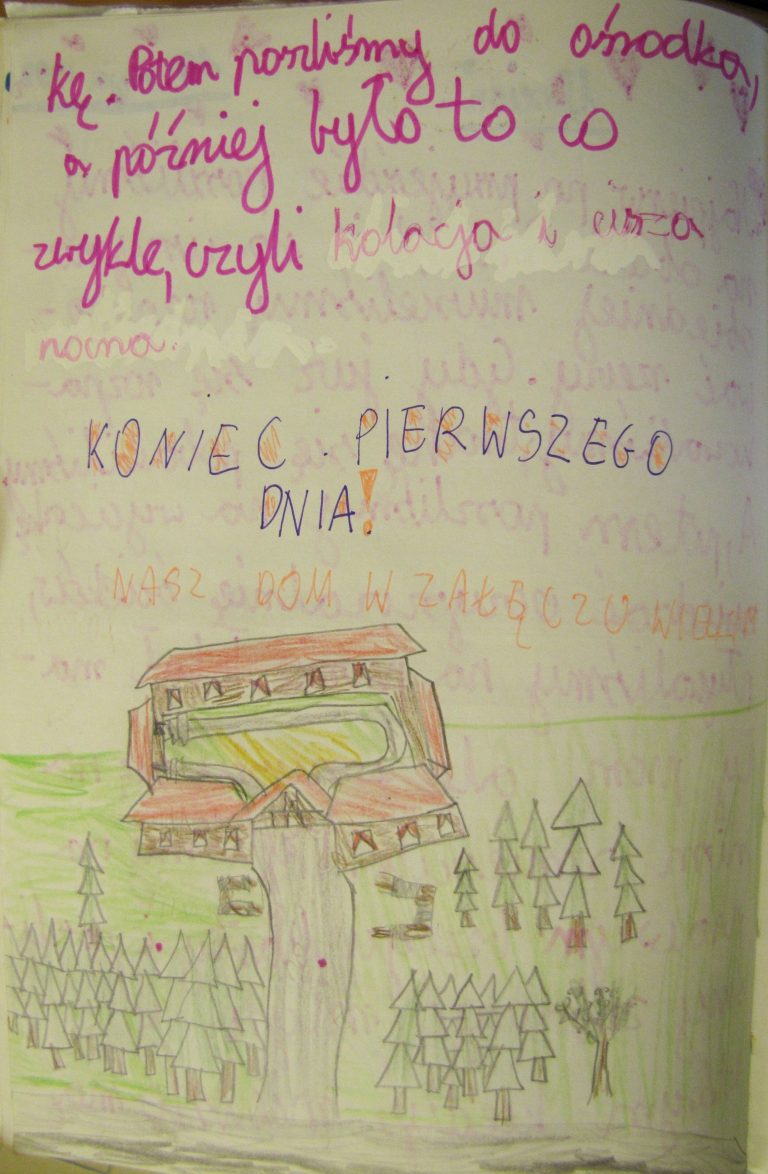 kę. Potem poszliśmy do ośrodka,
a później było to co
zwykle, czyli kolacja i cisza
nocna.
KONIEC PIERWSZEGO
DNIA!
NASZ DOM W ZAŁĘCZU WIELKIM